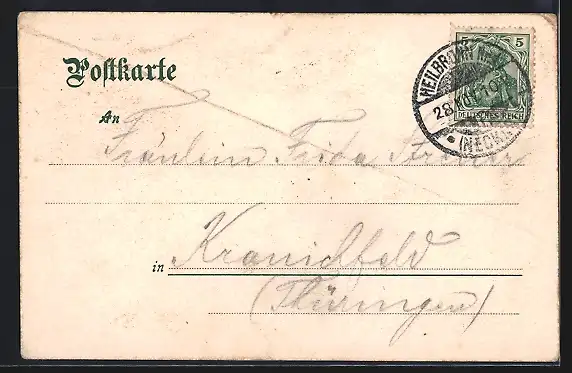 Postkarte
5 5
DEUTSCHES REICH
HEILBRONN
28
(NECK.)
An
Fräulein Frida
in Kranichfeld
(Thüringen)